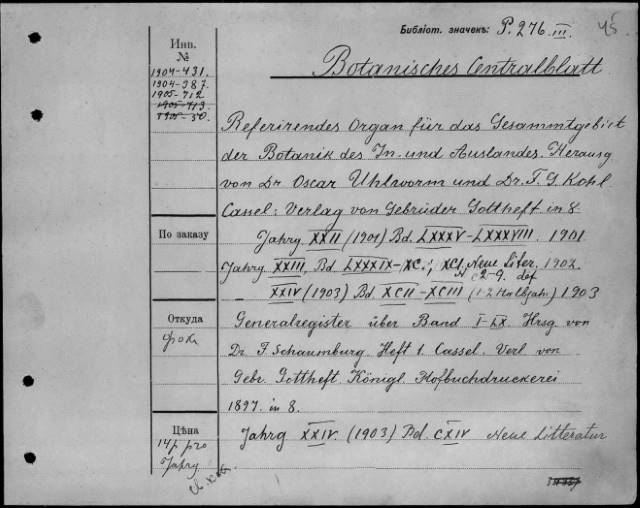 Библіот. значекъ: P. 276 III.
45
Инв.
№
1904-431.
1904-387.
1905-712
1905-713
1905-50.
Botanisches Centralblatt
Referirendes Organ für das Gesammtgebiet
der Botanik des In- und Auslandes. Herausg
von Dr Oscar Uhlworm und Dr. F. G. Kohl
Cassel: Verlag von Gebrüder Gottheft in 8
По заказу
Jahrg XXII (1901) Bd. LXXXV-LXXXVIII. 1901
Jahrg XXIII, Bd. LXXXIX-XC.; XCI Neue Liter. 1902.
№ 2-9. def
XXIV (1903) Bd. XCII-XCIII (1-2 Halbjahr) 1903
Откуда
Generalregister über Band I-LX. Hrsg. von
Dr F. Schaumburg. Heft 1. Cassel. Verl. von
Gebr. Gottheft. Königl. Hofbuchdruckerei
1897. in 8.
Цѣна
14 р
Jahrg
Jahrg XXIV. (1903) Bd. CXIV Neue Litteratur